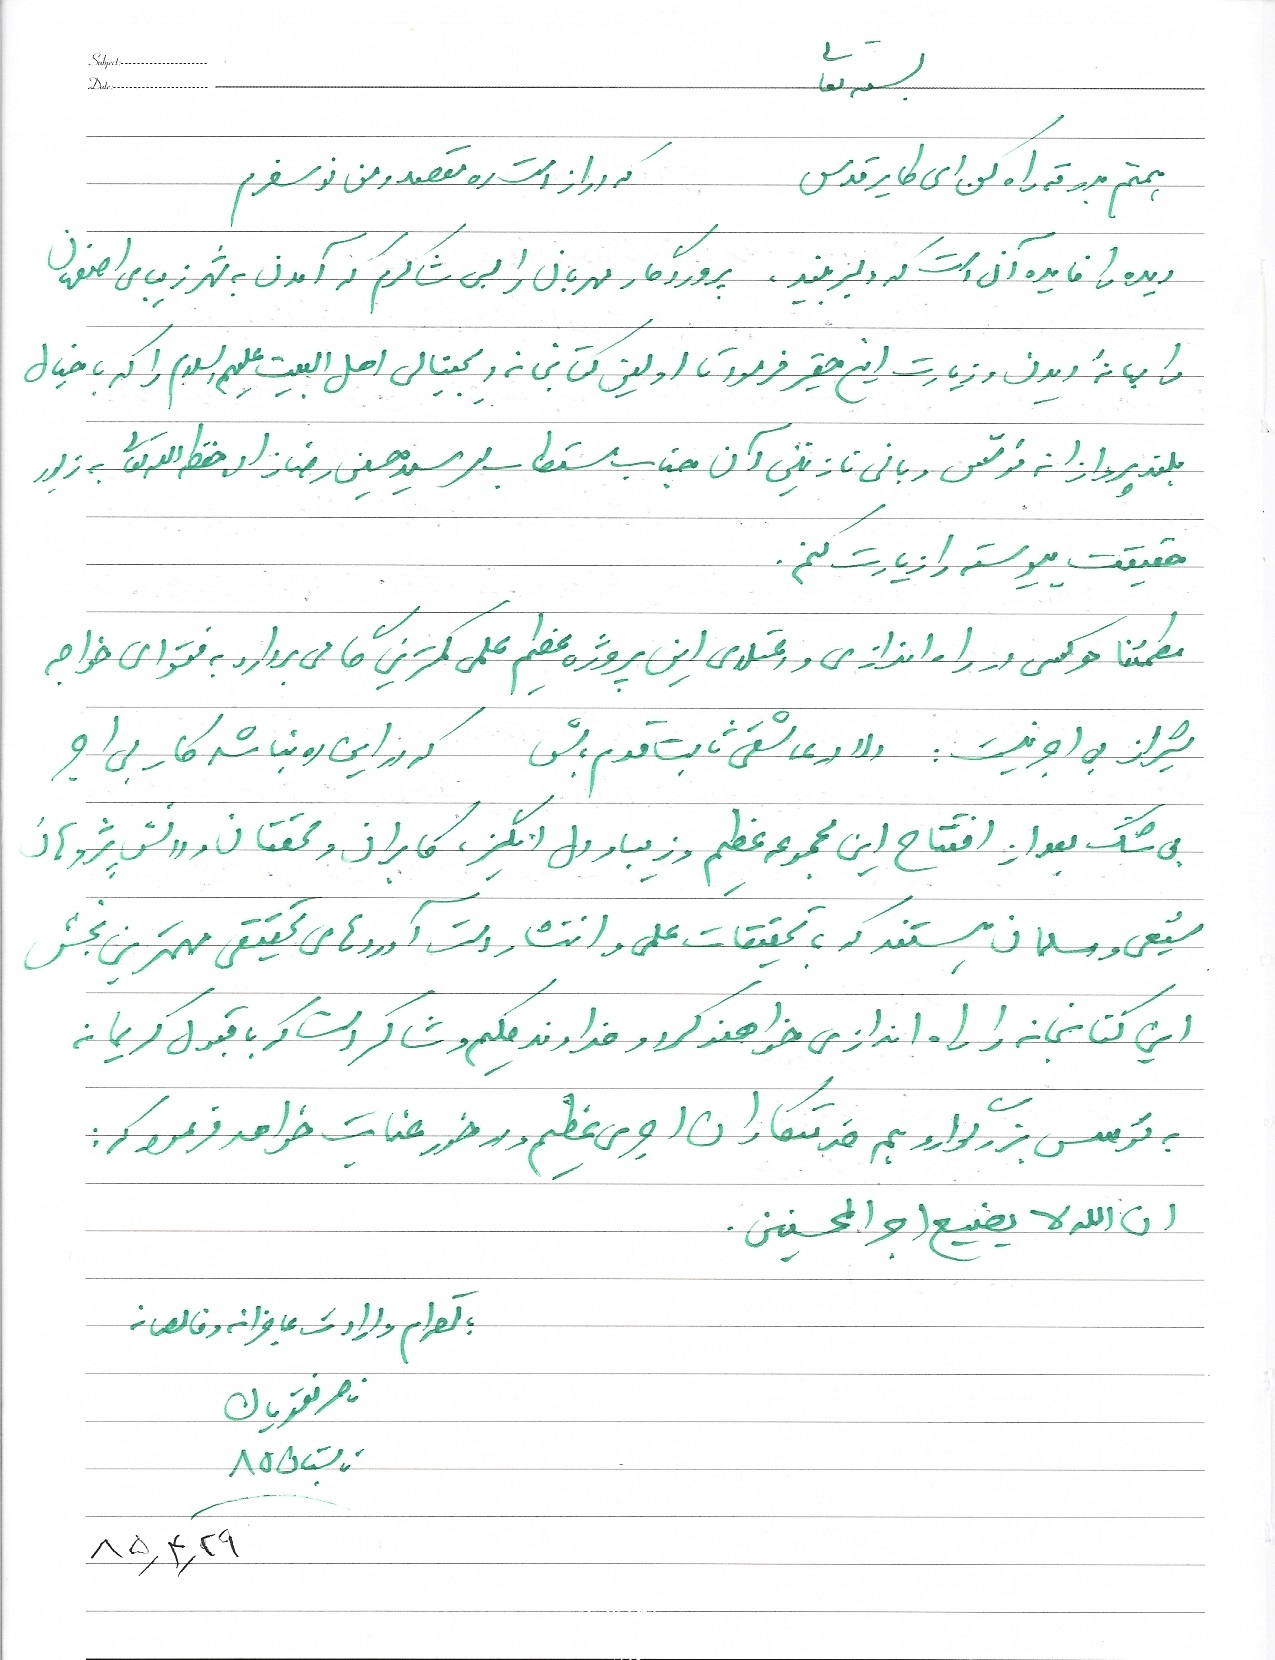 Subject:
Date:
بسمه تعالی
همتم بدرقه راه کن ای طایر قدس که دراز است ره مقصد و من نوسفرم
دیده را فایده آن است که دلبر بیند، پروردگار مهربان را بسی شاکرم که آمدن به شهر زیبای اصفهان
را بهانهٔ دیدن و زیارت این حقیر فرمود تا اولین کتابخانه دیجیتالی اهل البیت علیهم السلام را که با خیال
بلندپروازانه مؤسس و بانی نازنین آن جناب مستطاب سید حسینی رضازاد حفظه الله تعالی به زیور
حقیقت پیوسته را زیارت کنم.
مطمئنا هر کس در راه اندازی و اعتلای این پروژه عظیم علمی کمترین گامی بردارد به فتوای خواجه
شیراز بی اجر نیست: دلا در عاشقی ثابت قدم باش که در این ره نباشد کار بی اجر
بی شک بعد از افتتاح این مجموعه عظیم و زیبا و دل انگیز، کاربران و محققان و دانش پژوهان
شیعی و مسلمان هستند که با تحقیقات علمی و انتشار دست آوردهای تحقیقی مهمترین بخش
این کتابخانه را راه اندازی خواهند کرد و خداوند حکیم و شاکر است که با قبول کریمانه
به مؤسس بزرگوار و هم خدمتکاران اجری عظیم و در خور عنایت خواهد فرمود که:
ان الله لا یضیع اجر المحسنین.
با اکرام و ارادت عاجزانه و خالصانه
ناصر نقویان
تابستان ۸۵
۸۵/۴/۲۹